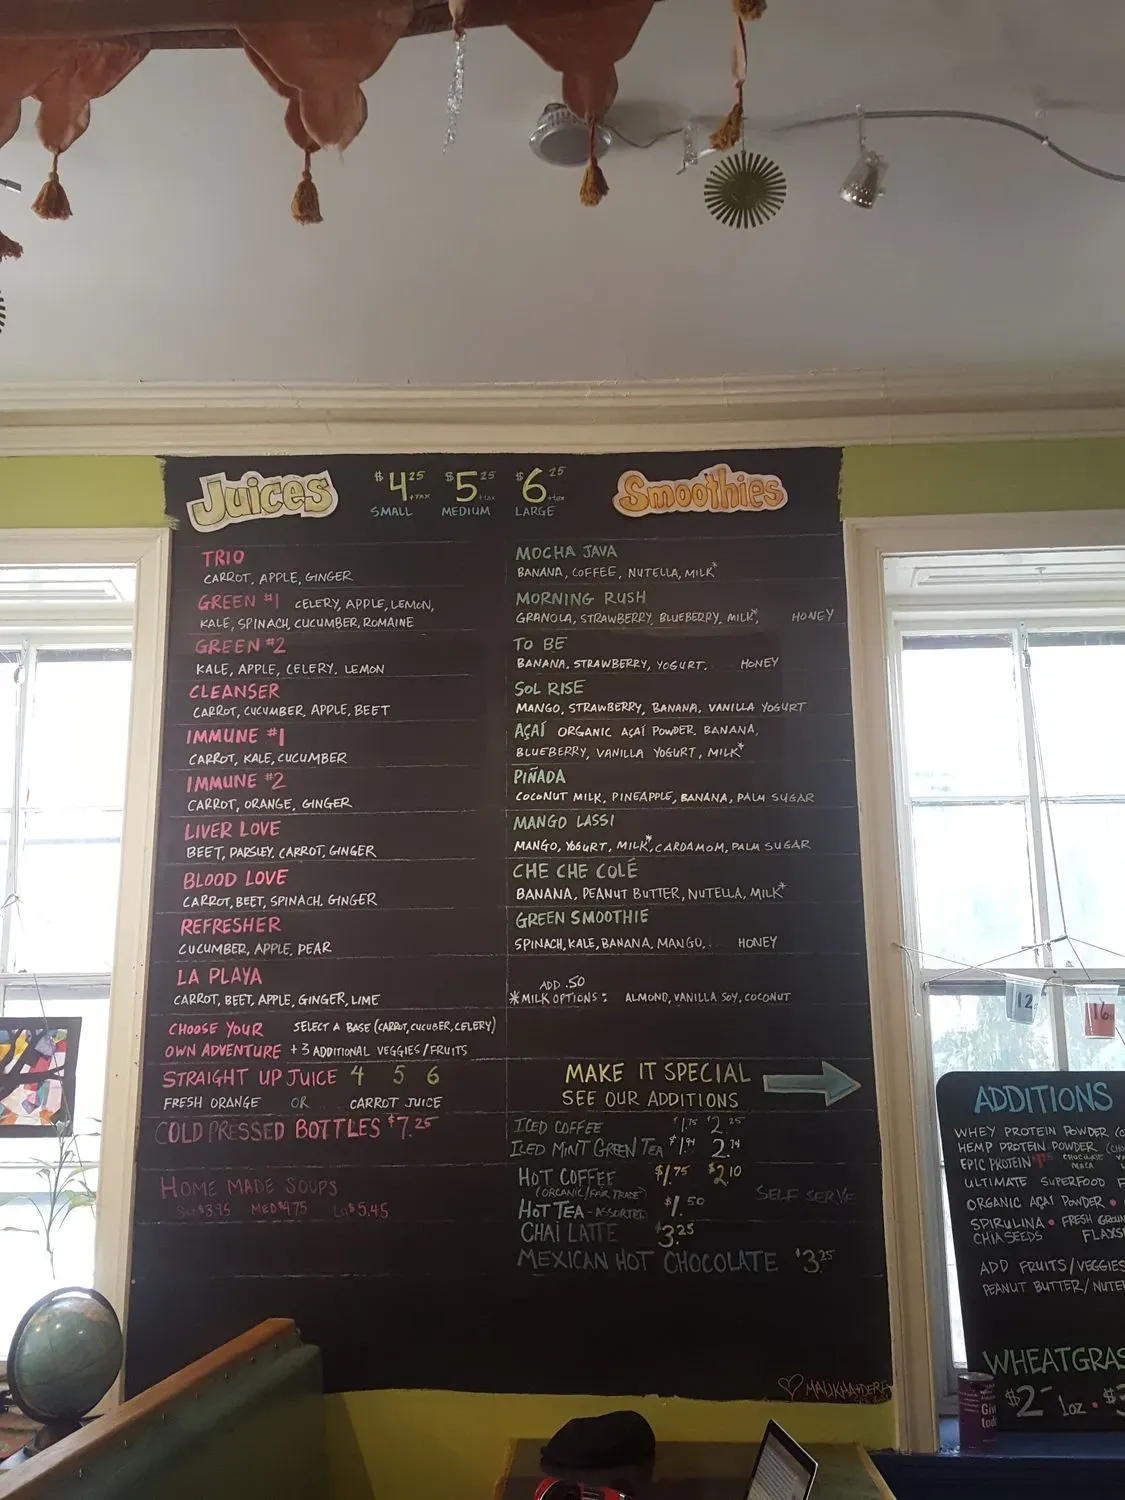 Juices $4.25 +tax $5.25 +tax $6.25 +tax Smoothies
SMALL MEDIUM LARGE
TRIO
CARROT, APPLE, GINGER
GREEN #1 CELERY, APPLE, LEMON,
KALE, SPINACH, CUCUMBER, ROMAINE
GREEN #2
KALE, APPLE, CELERY, LEMON
CLEANSER
CARROT, CUCUMBER, APPLE, BEET
IMMUNE #1
CARROT, KALE, CUCUMBER
IMMUNE #2
CARROT, ORANGE, GINGER
LIVER LOVE
BEET, PARSLEY, CARROT, GINGER
BLOOD LOVE
CARROT, BEET, SPINACH, GINGER
REFRESHER
CUCUMBER, APPLE, PEAR
LA PLAYA
CARROT, BEET, APPLE, GINGER, LIME
CHOOSE YOUR SELECT A BASE (CARROT, CUCUBER, CELERY)
OWN ADVENTURE +3 ADDITIONAL VEGGIES/FRUITS
STRAIGHT UP JUICE 4 5 6
FRESH ORANGE OR CARROT JUICE
COLD PRESSED BOTTLES $7.25
HOME MADE SOUPS
$3.95 MED $4.75 LG $5.45
MOCHA JAVA
BANANA, COFFEE, NUTELLA, MILK*
MORNING RUSH
GRANOLA, STRAWBERRY, BLUEBERRY, MILK*, HONEY
TO BE
BANANA, STRAWBERRY, YOGURT, HONEY
SOL RISE
MANGO, STRAWBERRY, BANANA, VANILLA YOGURT
AÇAÍ ORGANIC AÇAÍ POWDER, BANANA,
BLUEBERRY, VANILLA YOGURT, MILK*
PIÑADA
COCONUT MILK, PINEAPPLE, BANANA, PALM SUGAR
MANGO LASSI
MANGO, YOGURT, MILK*, CARDAMOM, PALM SUGAR
CHE CHE COLÉ
BANANA, PEANUT BUTTER, NUTELLA, MILK*
GREEN SMOOTHIE
SPINACH, KALE, BANANA, MANGO, HONEY
ADD .50
*MILK OPTIONS: ALMOND, VANILLA SOY, COCONUT
MAKE IT SPECIAL
SEE OUR ADDITIONS
ICED COFFEE $1.75 $2.25
ICED MINT GREEN TEA $1.94 2.74
HOT COFFEE $1.75 $2.10
(ORGANIC/FAIR TRADE) SELF SERVE
HOT TEA - ASSORTED $1.50
CHAI LATTE $3.25
MEXICAN HOT CHOCOLATE $3.25
12
16
ADDITIONS
WHEY PROTEIN POWDER
HEMP PROTEIN POWDER
EPIC PROTEIN CHOCOLATE
MACA
ULTIMATE SUPERFOOD
ORGANIC AÇAÍ POWDER •
SPIRULINA • FRESH
CHIA SEEDS
ADD FRUITS/VEGGIES
PEANUT BUTTER/
$2 1oz • $